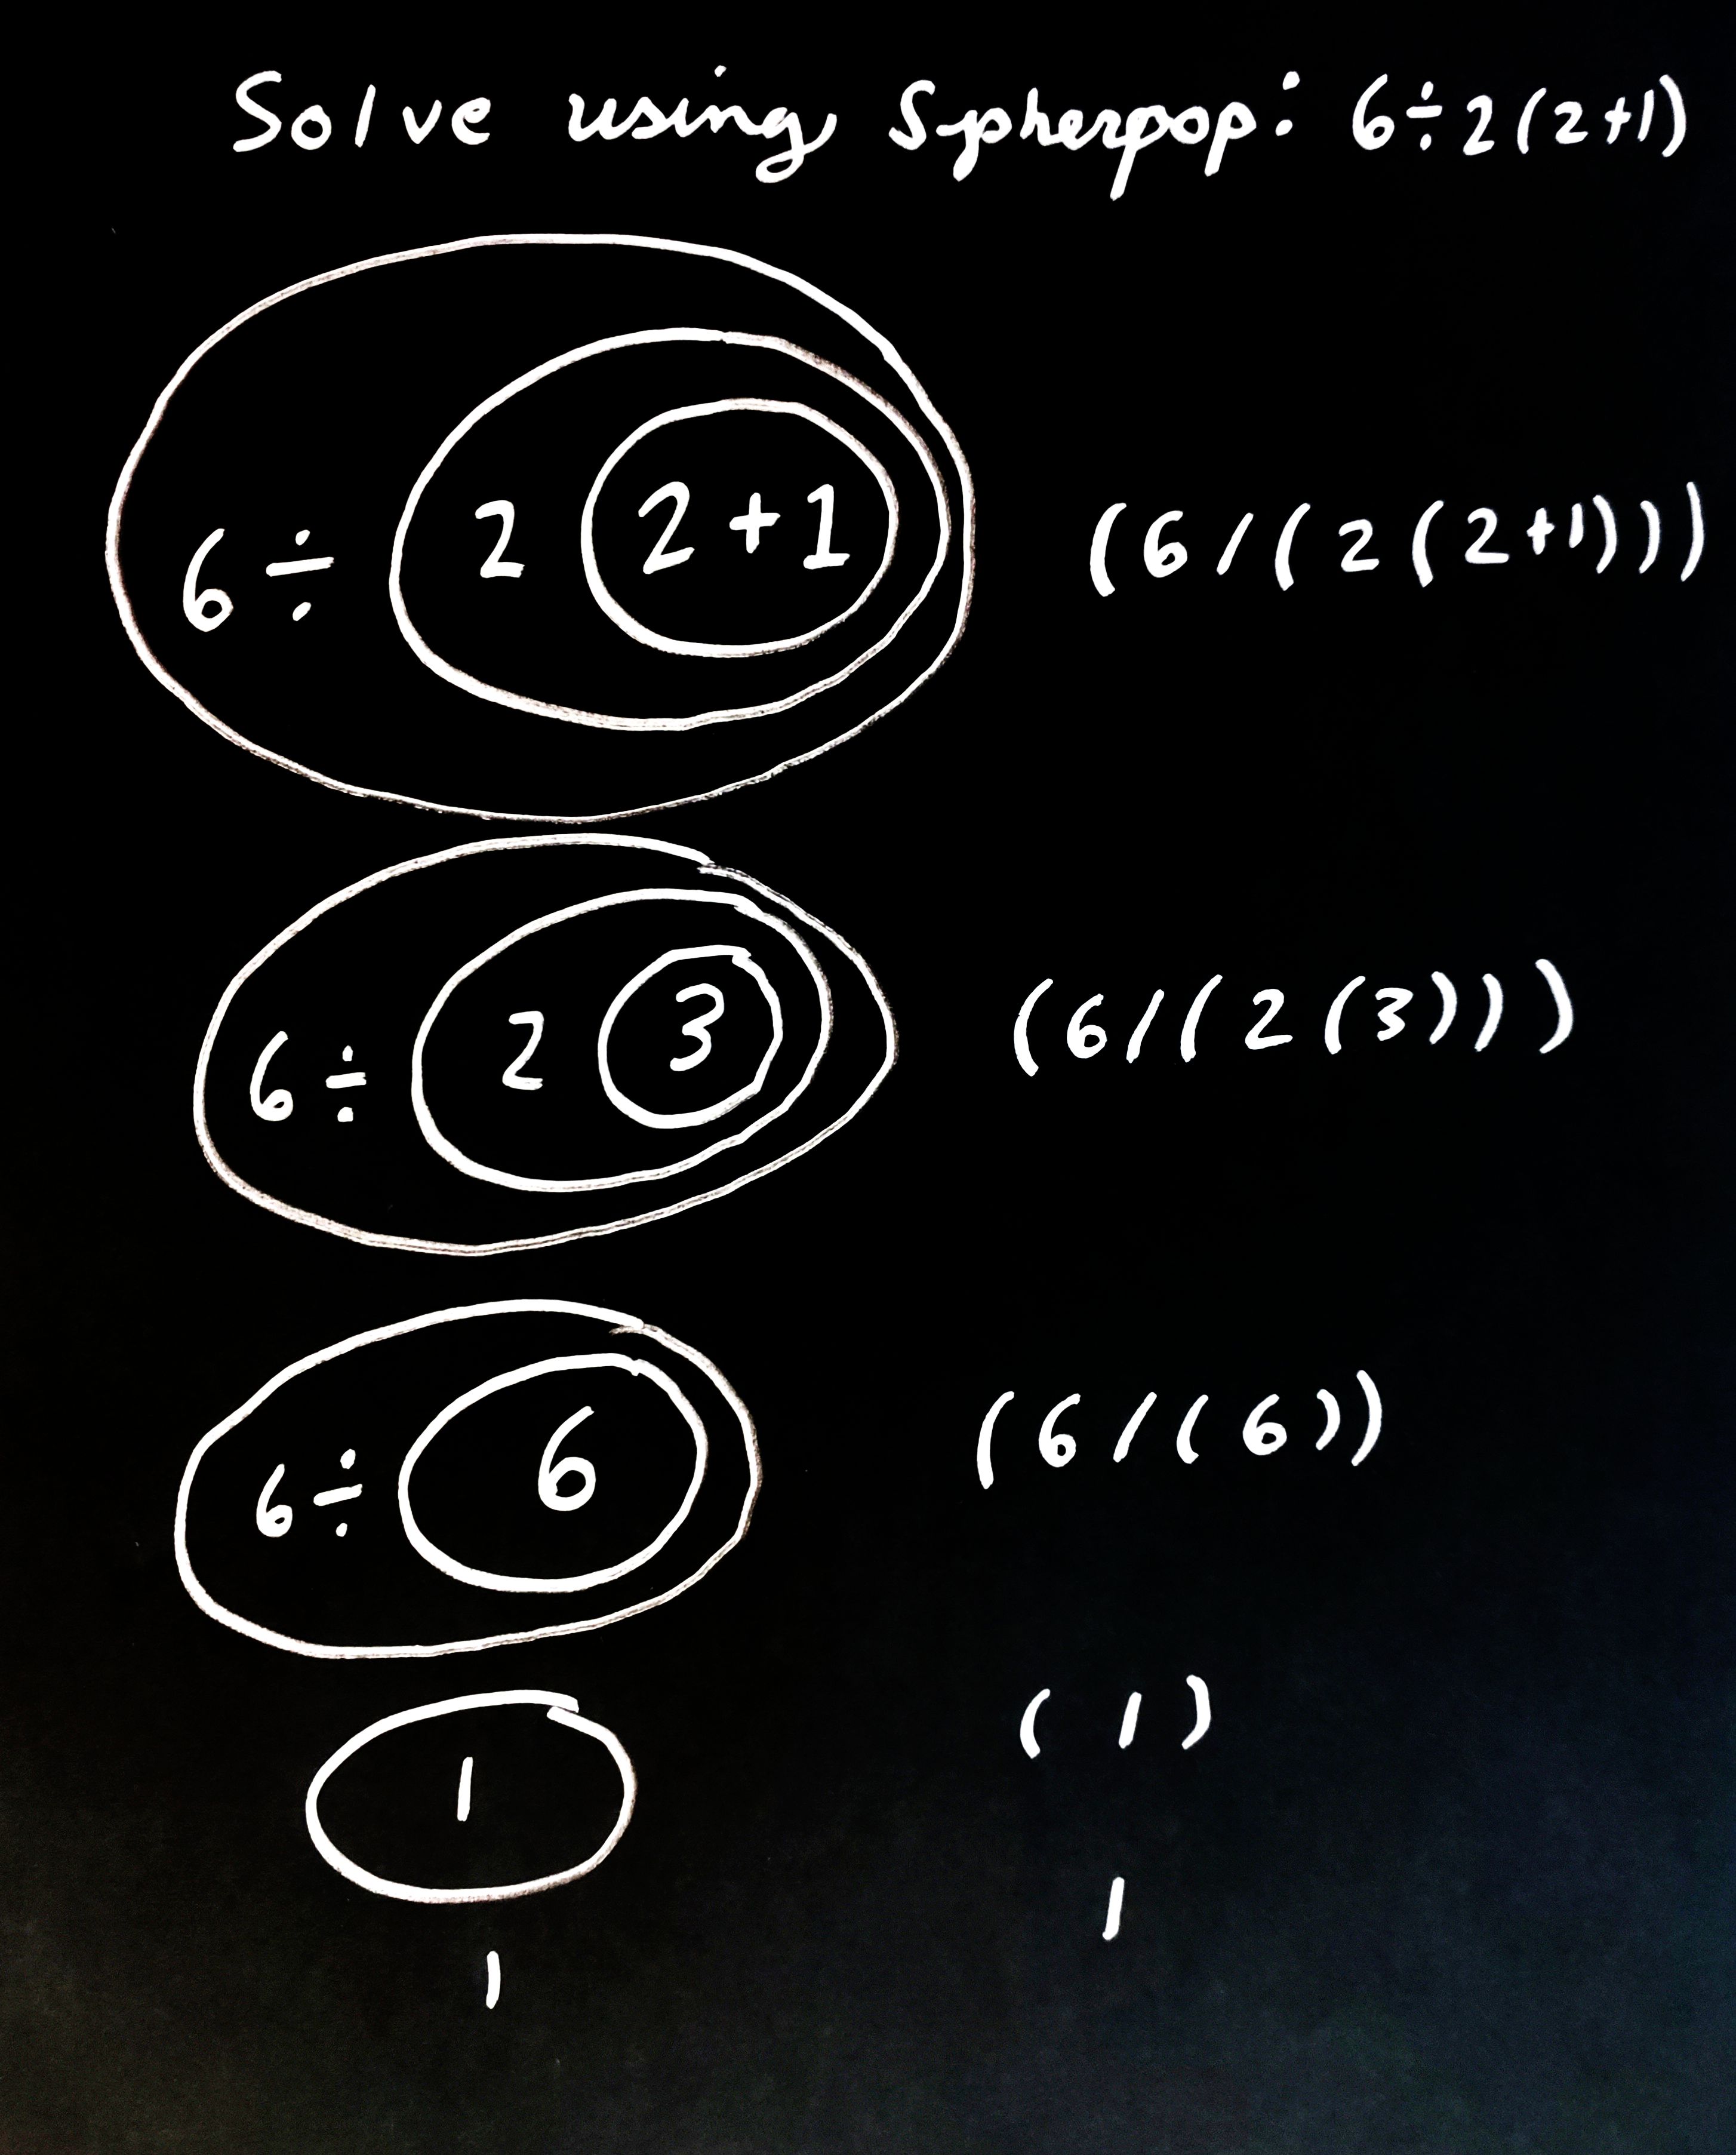 Solve using Spherepop: 6÷2(2+1)
6 ÷ 2 2+1 (6/(2(2+1)))
6 ÷ 2 3 (6/(2(3)))
6÷ 6 (6/(6))
1 (1)
1 1